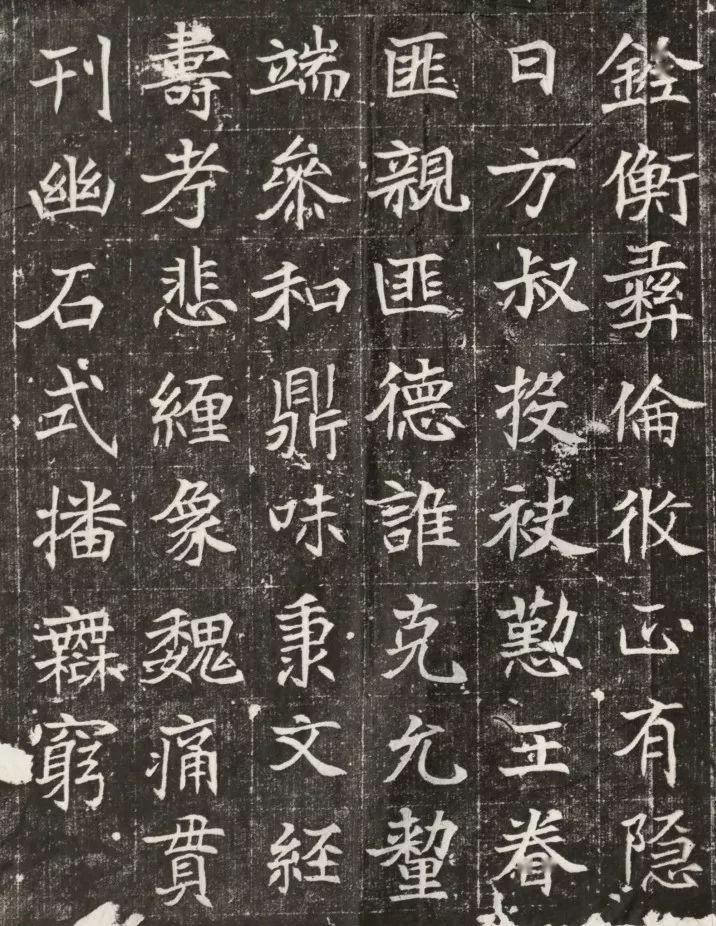 銓衡彝倫攸正有隱
日方叔投袂懃王眷
匪親匪德誰克允釐
端參和鼎味秉文經
壽考悲纏象魏痛貫
刊幽石式播無窮